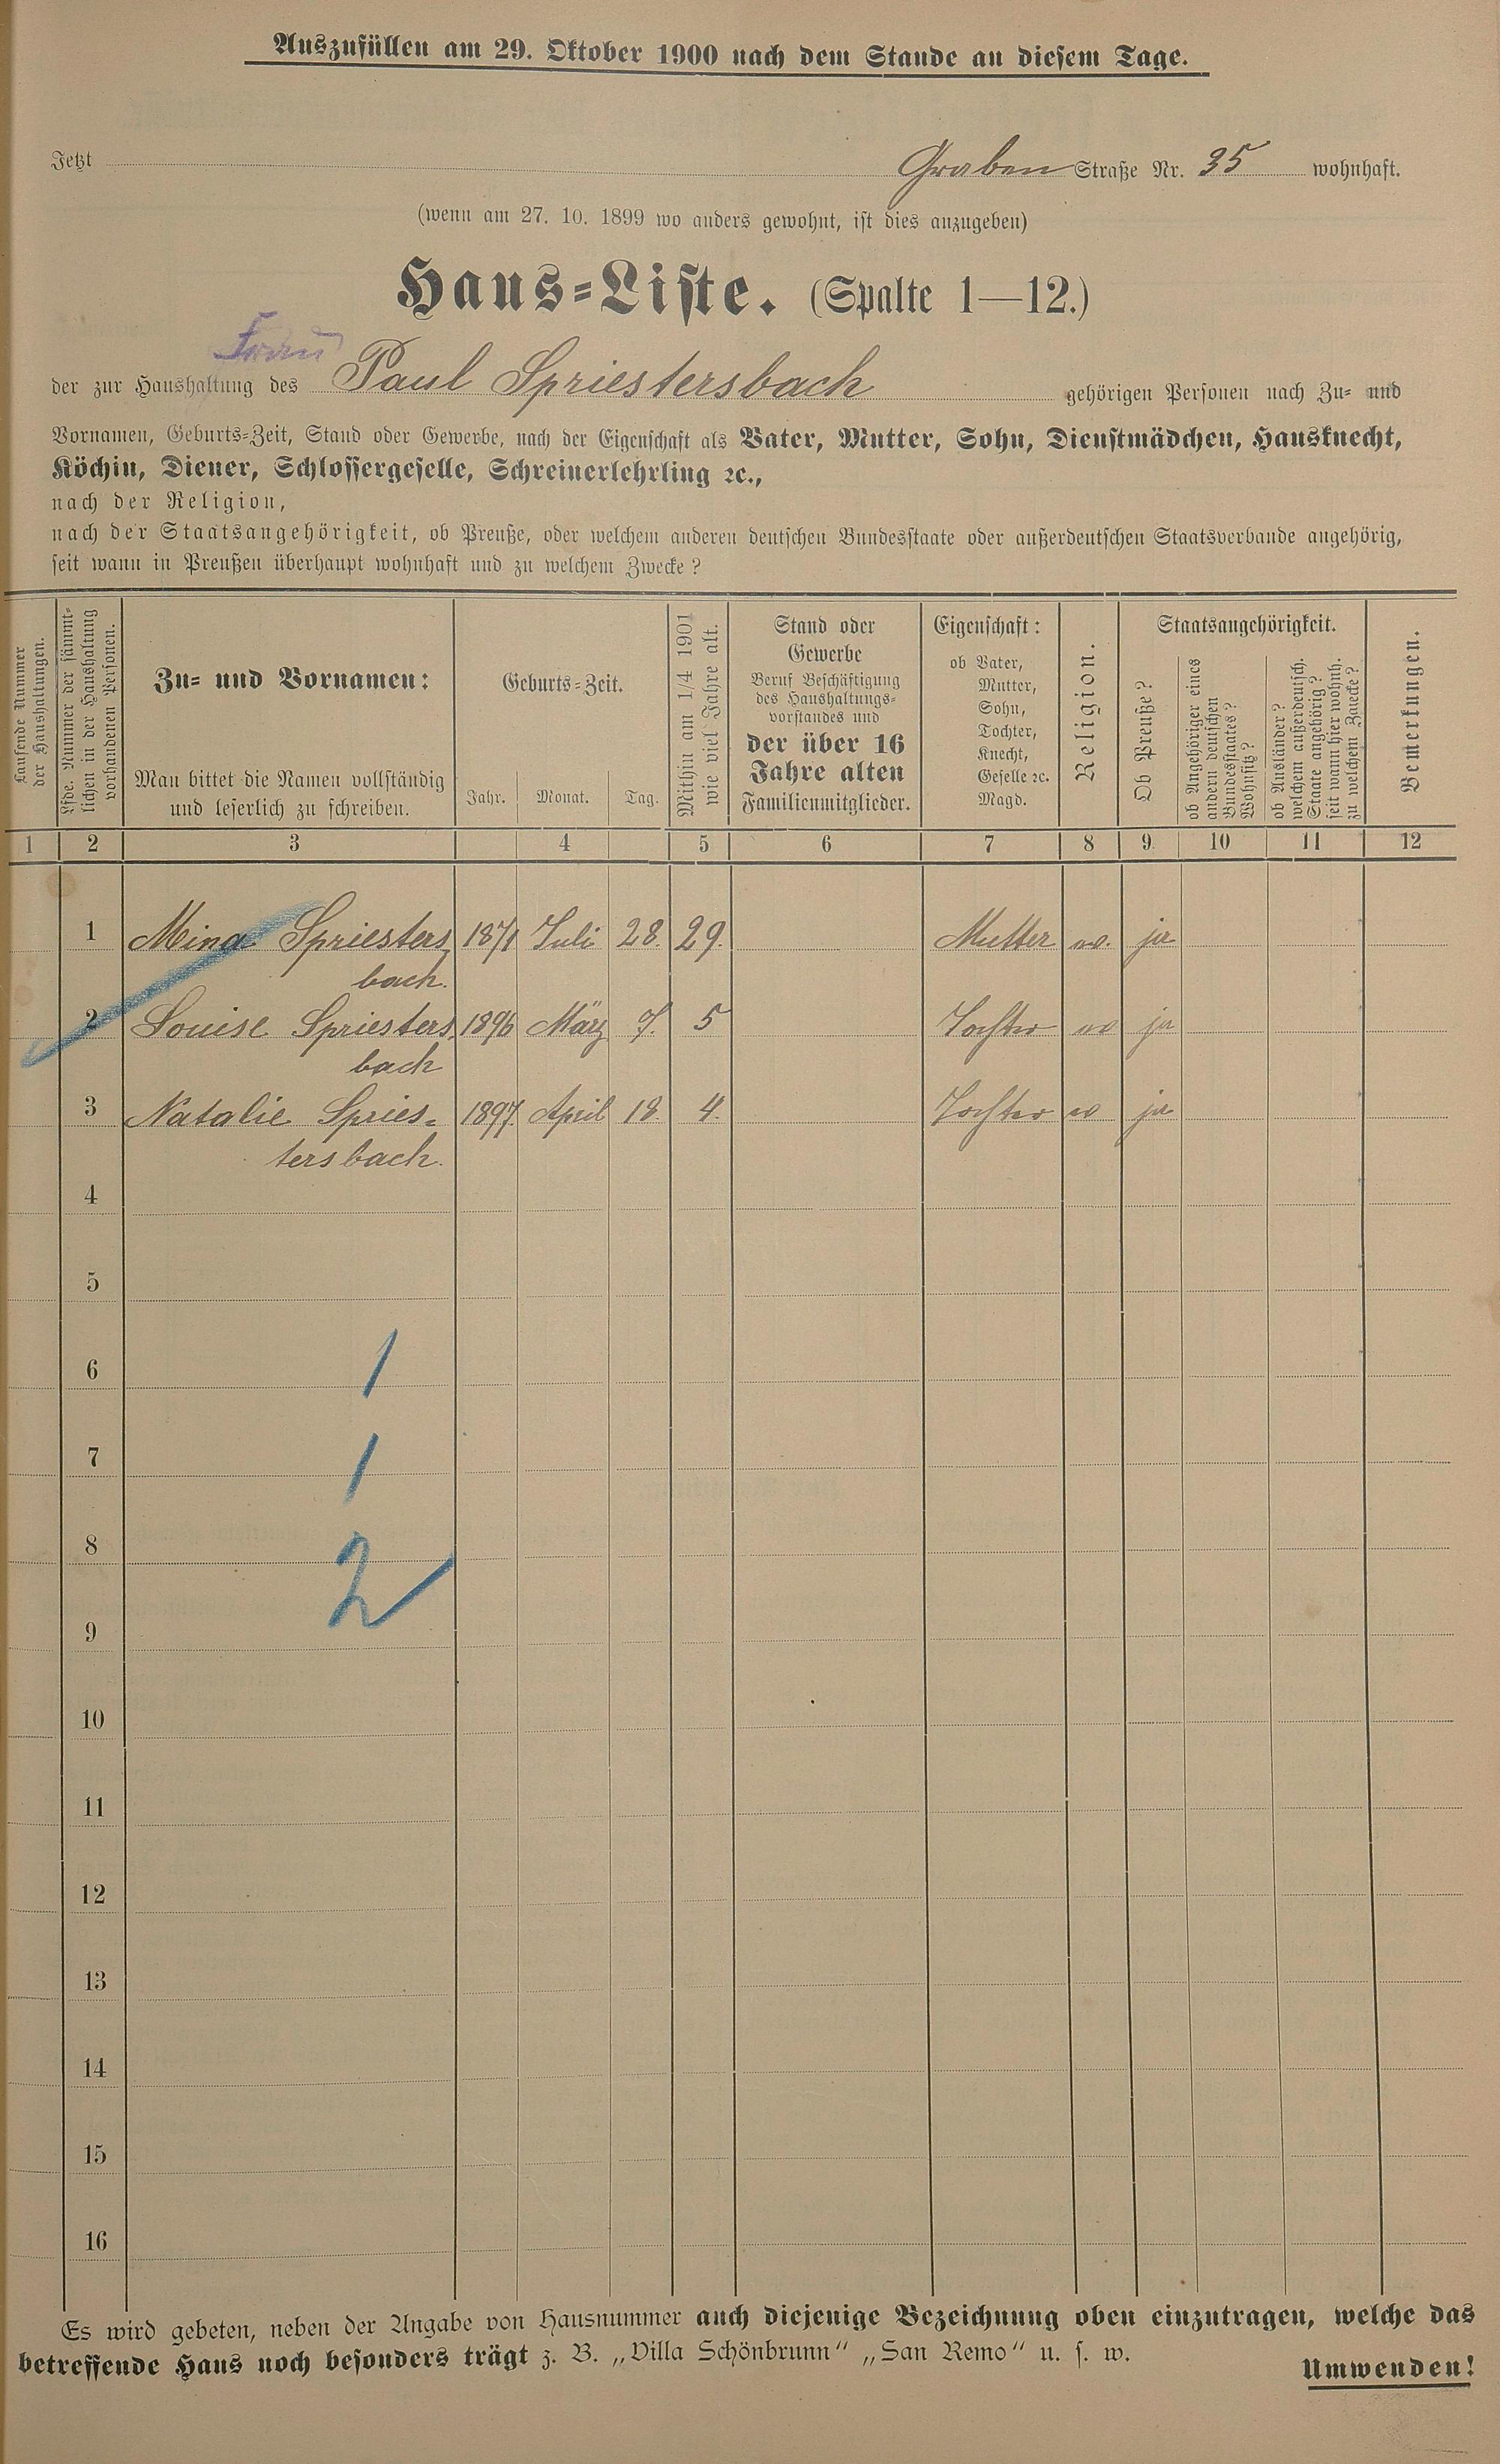 Auszufüllen am 29. Oktober 1900 nach dem Stande an diesem Tage.
Jetzt Graben Straße Nr. 35 wohnhaft.
(wenn am 27. 10. 1899 wo anders gewohnt, ist dies anzugeben)
Haus=Liste. (Spalte 1—12.)
Frau
der zur Haushaltung des Paul Spriestersbach gehörigen Personen nach Zu= und
Vornamen, Geburts=Zeit, Stand oder Gewerbe, nach der Eigenschaft als Vater, Mutter, Sohn, Dienstmädchen, Hausknecht,
Köchin, Diener, Schlossergeselle, Schreinerlehrling ꝛc.,
nach der Religion,
nach der Staatsangehörigkeit, ob Preuße, oder welchem anderen deutschen Bundesstaate oder außerdeutschen Staatsverbande angehörig,
seit wann in Preußen überhaupt wohnhaft und zu welchem Zwecke?
Laufende Nummer
der Haushaltungen.
Lfde. Nummer der sämmt=
lichen in der Haushaltung
vorhandenen Personen.
Zu= und Vornamen:
Man bittet die Namen vollständig
und leserlich zu schreiben.
Geburts=Zeit.
Jahr. Monat. Tag.
Mithin am 1/4 1901
wie viel Jahre alt.
Stand oder
Gewerbe
Beruf Beschäftigung
des Haushaltungs=
vorstandes und
der über 16
Jahre alten
Familienmitglieder.
Eigenschaft:
ob Vater,
Mutter,
Sohn,
Tochter,
Knecht,
Geselle ꝛc.
Magd.
Religion.
Staatsangehörigkeit.
Ob Preuße?
ob Angehöriger eines
andern deutschen
Bundesstaates?
Wohnsitz?
ob Ausländer?
welchem außerdeutsch.
Staate angehörig?
seit wann hier wohnh.
zu welchem Zwecke?
Bemerkungen.
1 2 3 4 5 6 7 8 9 10 11 12
1 Mina Spriesters 1871 Juli 28. 29. Mutter ja
bach.
2 Louise Spriesters 1896 März 7. 5 Tochter ja
bach
3 Natalie Spries= 1897. April 18. 4. Tochter ja
tersbach.
4
5
6 1
7 1
8 2
9
10
11
12
13
14
15
16
Es wird gebeten, neben der Angabe von Hausnummer auch diejenige Bezeichnung oben einzutragen, welche das
betreffende Haus noch besonders trägt z. B. „Villa Schönbrunn“ „San Remo“ u. s. w.
Umwenden!